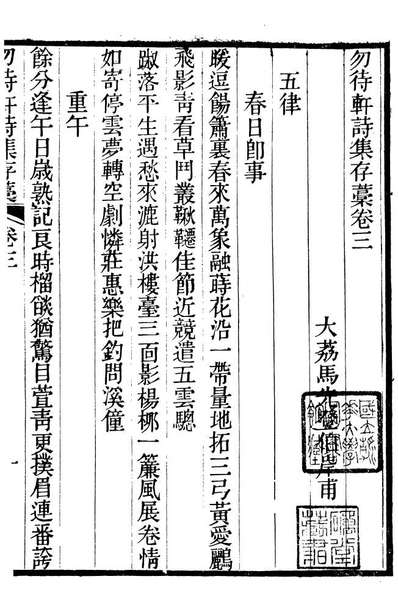 勿待軒詩集存藁卷三
大荔馬先登伯岸甫
五律
春日卽事
暖逗餳簫裏春來萬象融蒔花沿一帶量地拓三弓黃愛鸝
飛影靑看草鬥叢鞦韆佳節近競遣五雲驄
落平生遇愁來漉射洪樓臺三面影楊栁一簾風展卷情
如寄停雲夢轉空劇憐莊惠樂把釣問溪僮
重午
餘分逢午日歲熟記良時榴燄猶驚目萱靑更撲眉連番誇
勿待軒詩集存藁 卷三